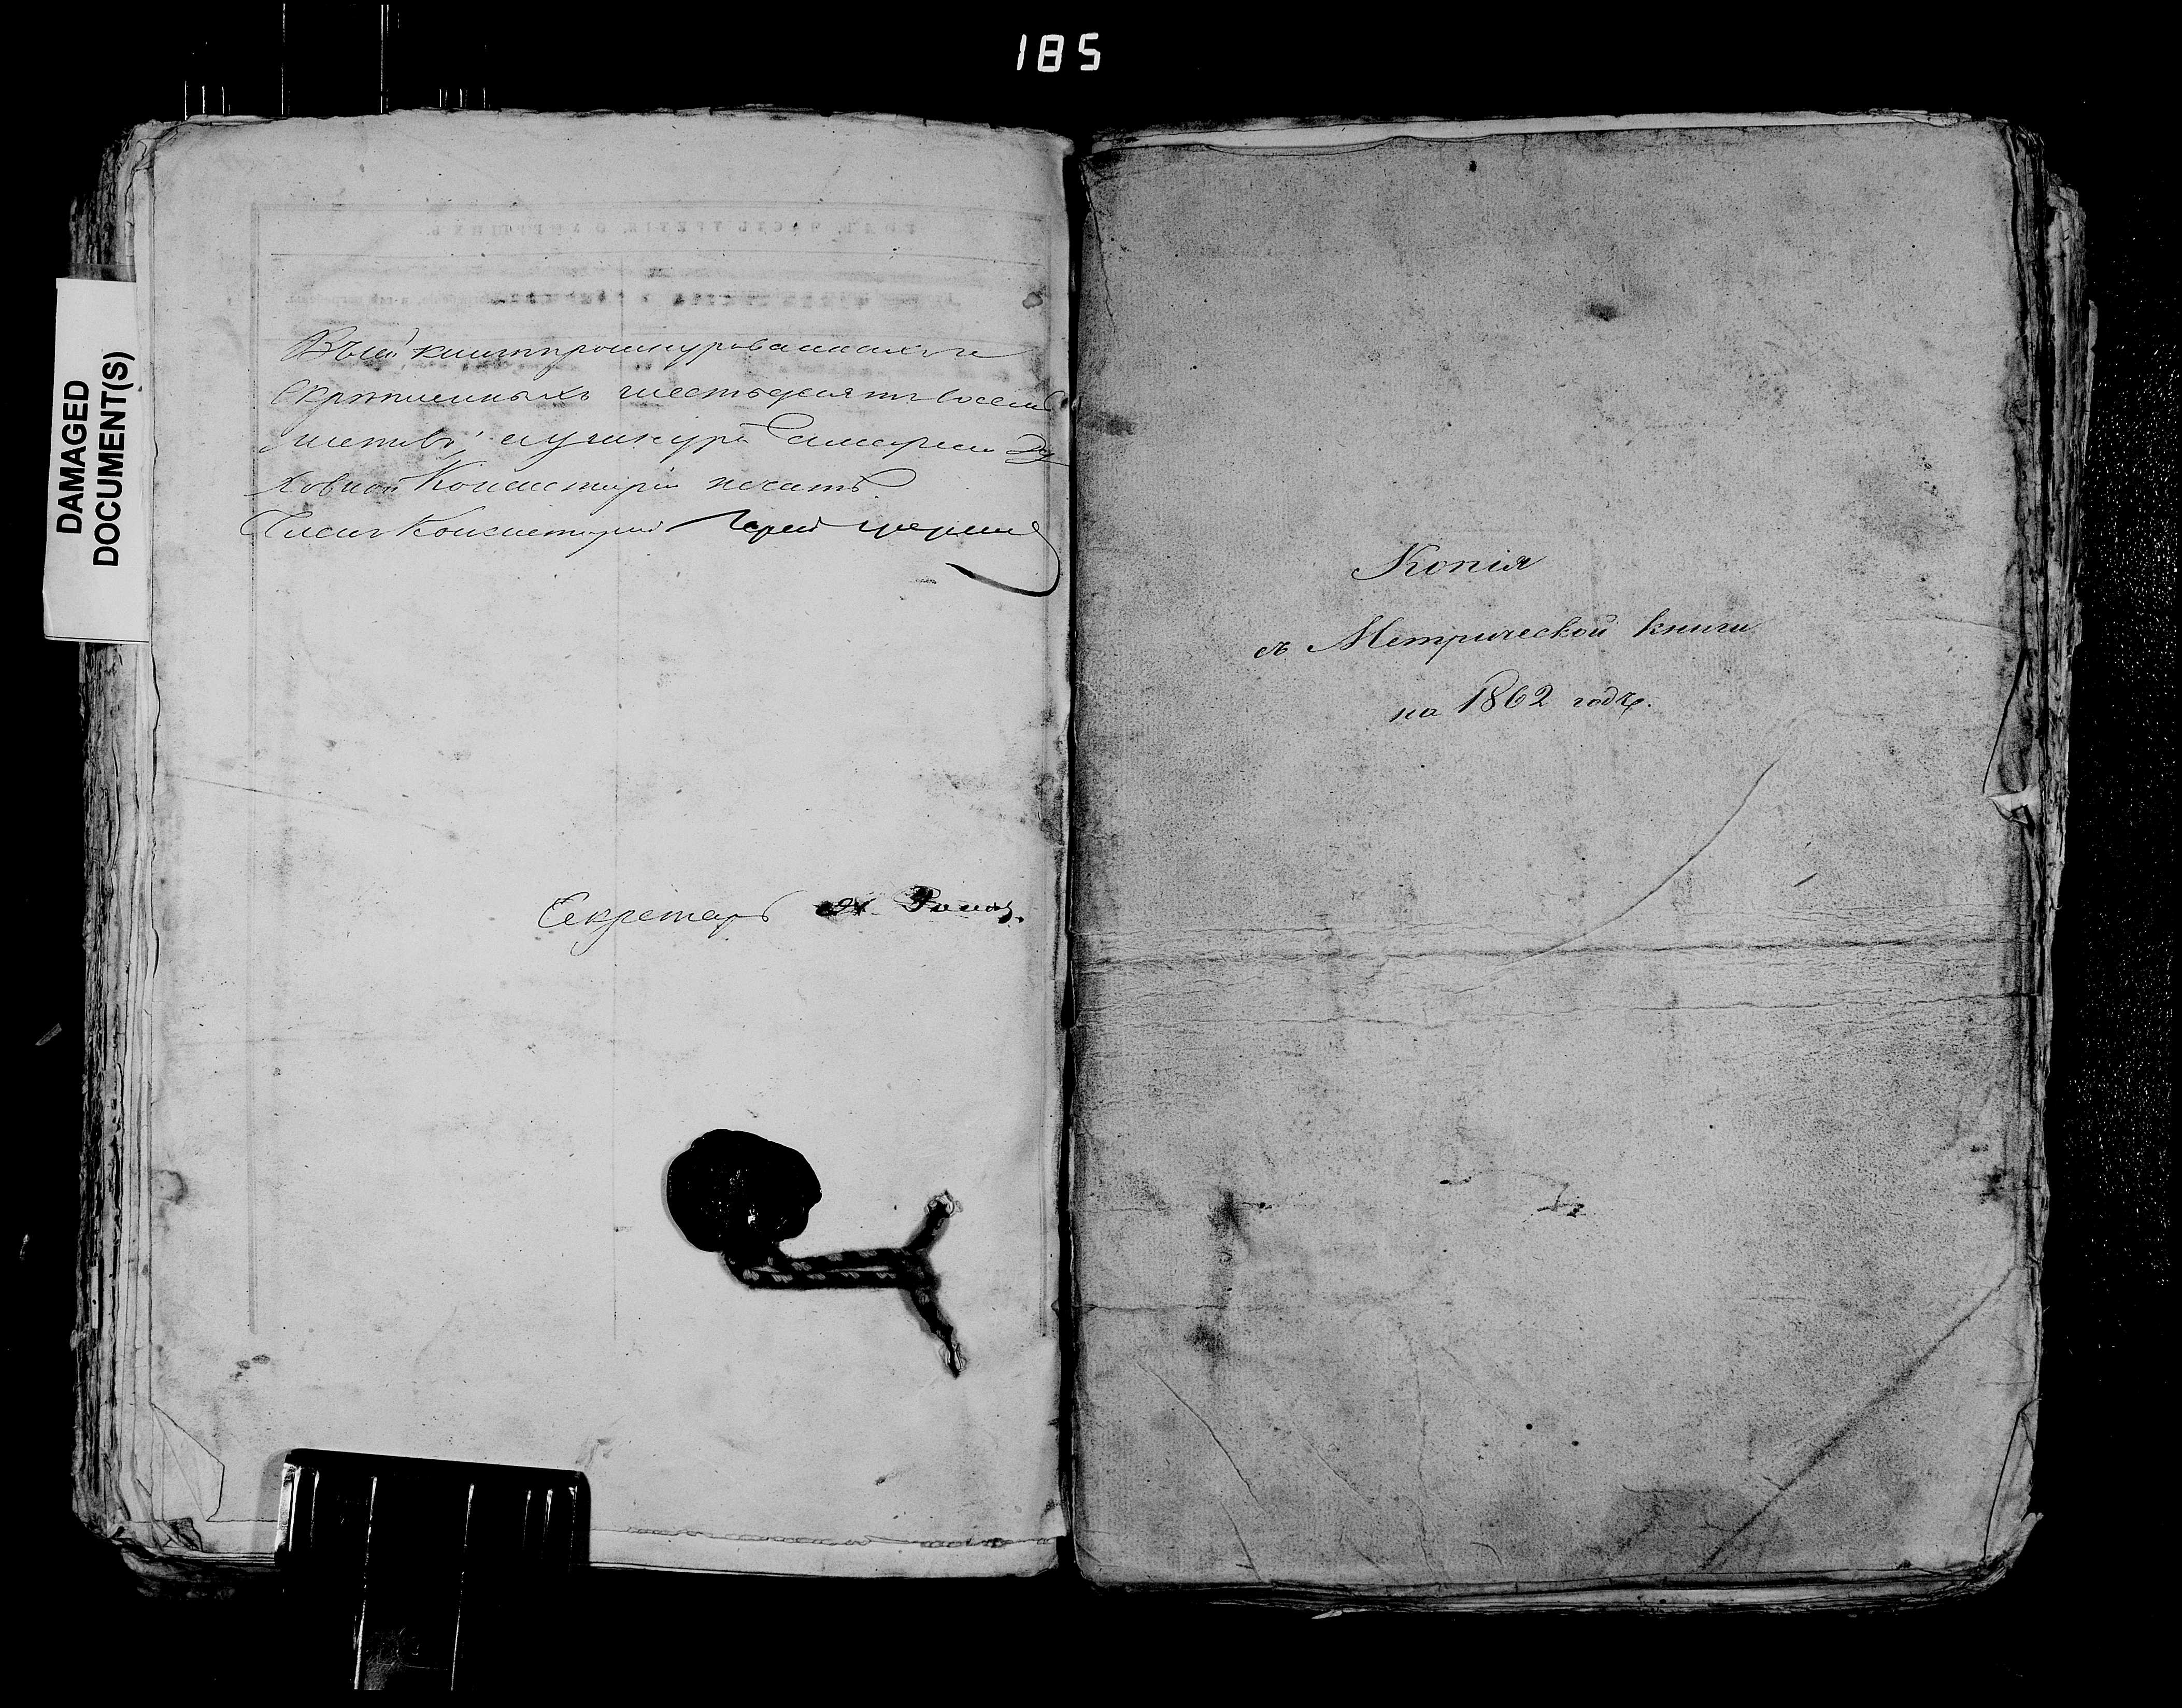 185
DAMAGED
DOCUMENT(S)
Въ сей книгѣ прошнурованныхъ и
скрѣпленныхъ шестьдесятъ восемь
листовъ; а у шнура Самарской Ду
ховной Консисторіи печать.
Членъ Консисторіи Іерей
Секретарь
Копія
съ Метрической книги
на 1862 годъ.